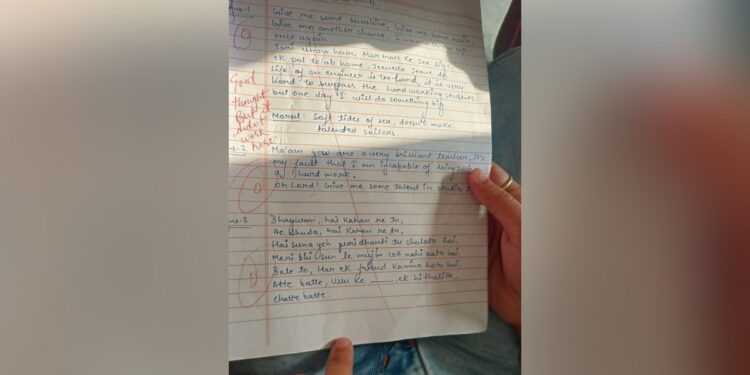 Ans-1
Give me some sunshine, Give me some rain
Give me another chance, I wanna grow up
once again
Sari umra ham, Mur mar ke jee liye
ek pal to ab hame, jeenedo jeene do.
Life of an engineer is too hard, it is very
hard to surpass the hard working students
but one day I will do something big
Moral: Soft tides of sea, doesn't make
talented sailors.
0
Good
thought
But it
didn't
work
here
Ans-2
Ma'am you are a very brilliant teacher, it's
my fault that I am incapable of doing such
a hard work.
Oh Lord! Give me some talent in
0
Ans-3
Bhagwan, hai Kahan re tu,
Ae khuda, hai Kahan re tu,
Hai suna yeh tu chalata hai,
Meri bhi sun le mujhe COA nahi aata hai,
Bole to, Har ek friend Kamina hota hai
Atte batte, Ullu ke ____, ek hi thali ke,
chatte batte.
0